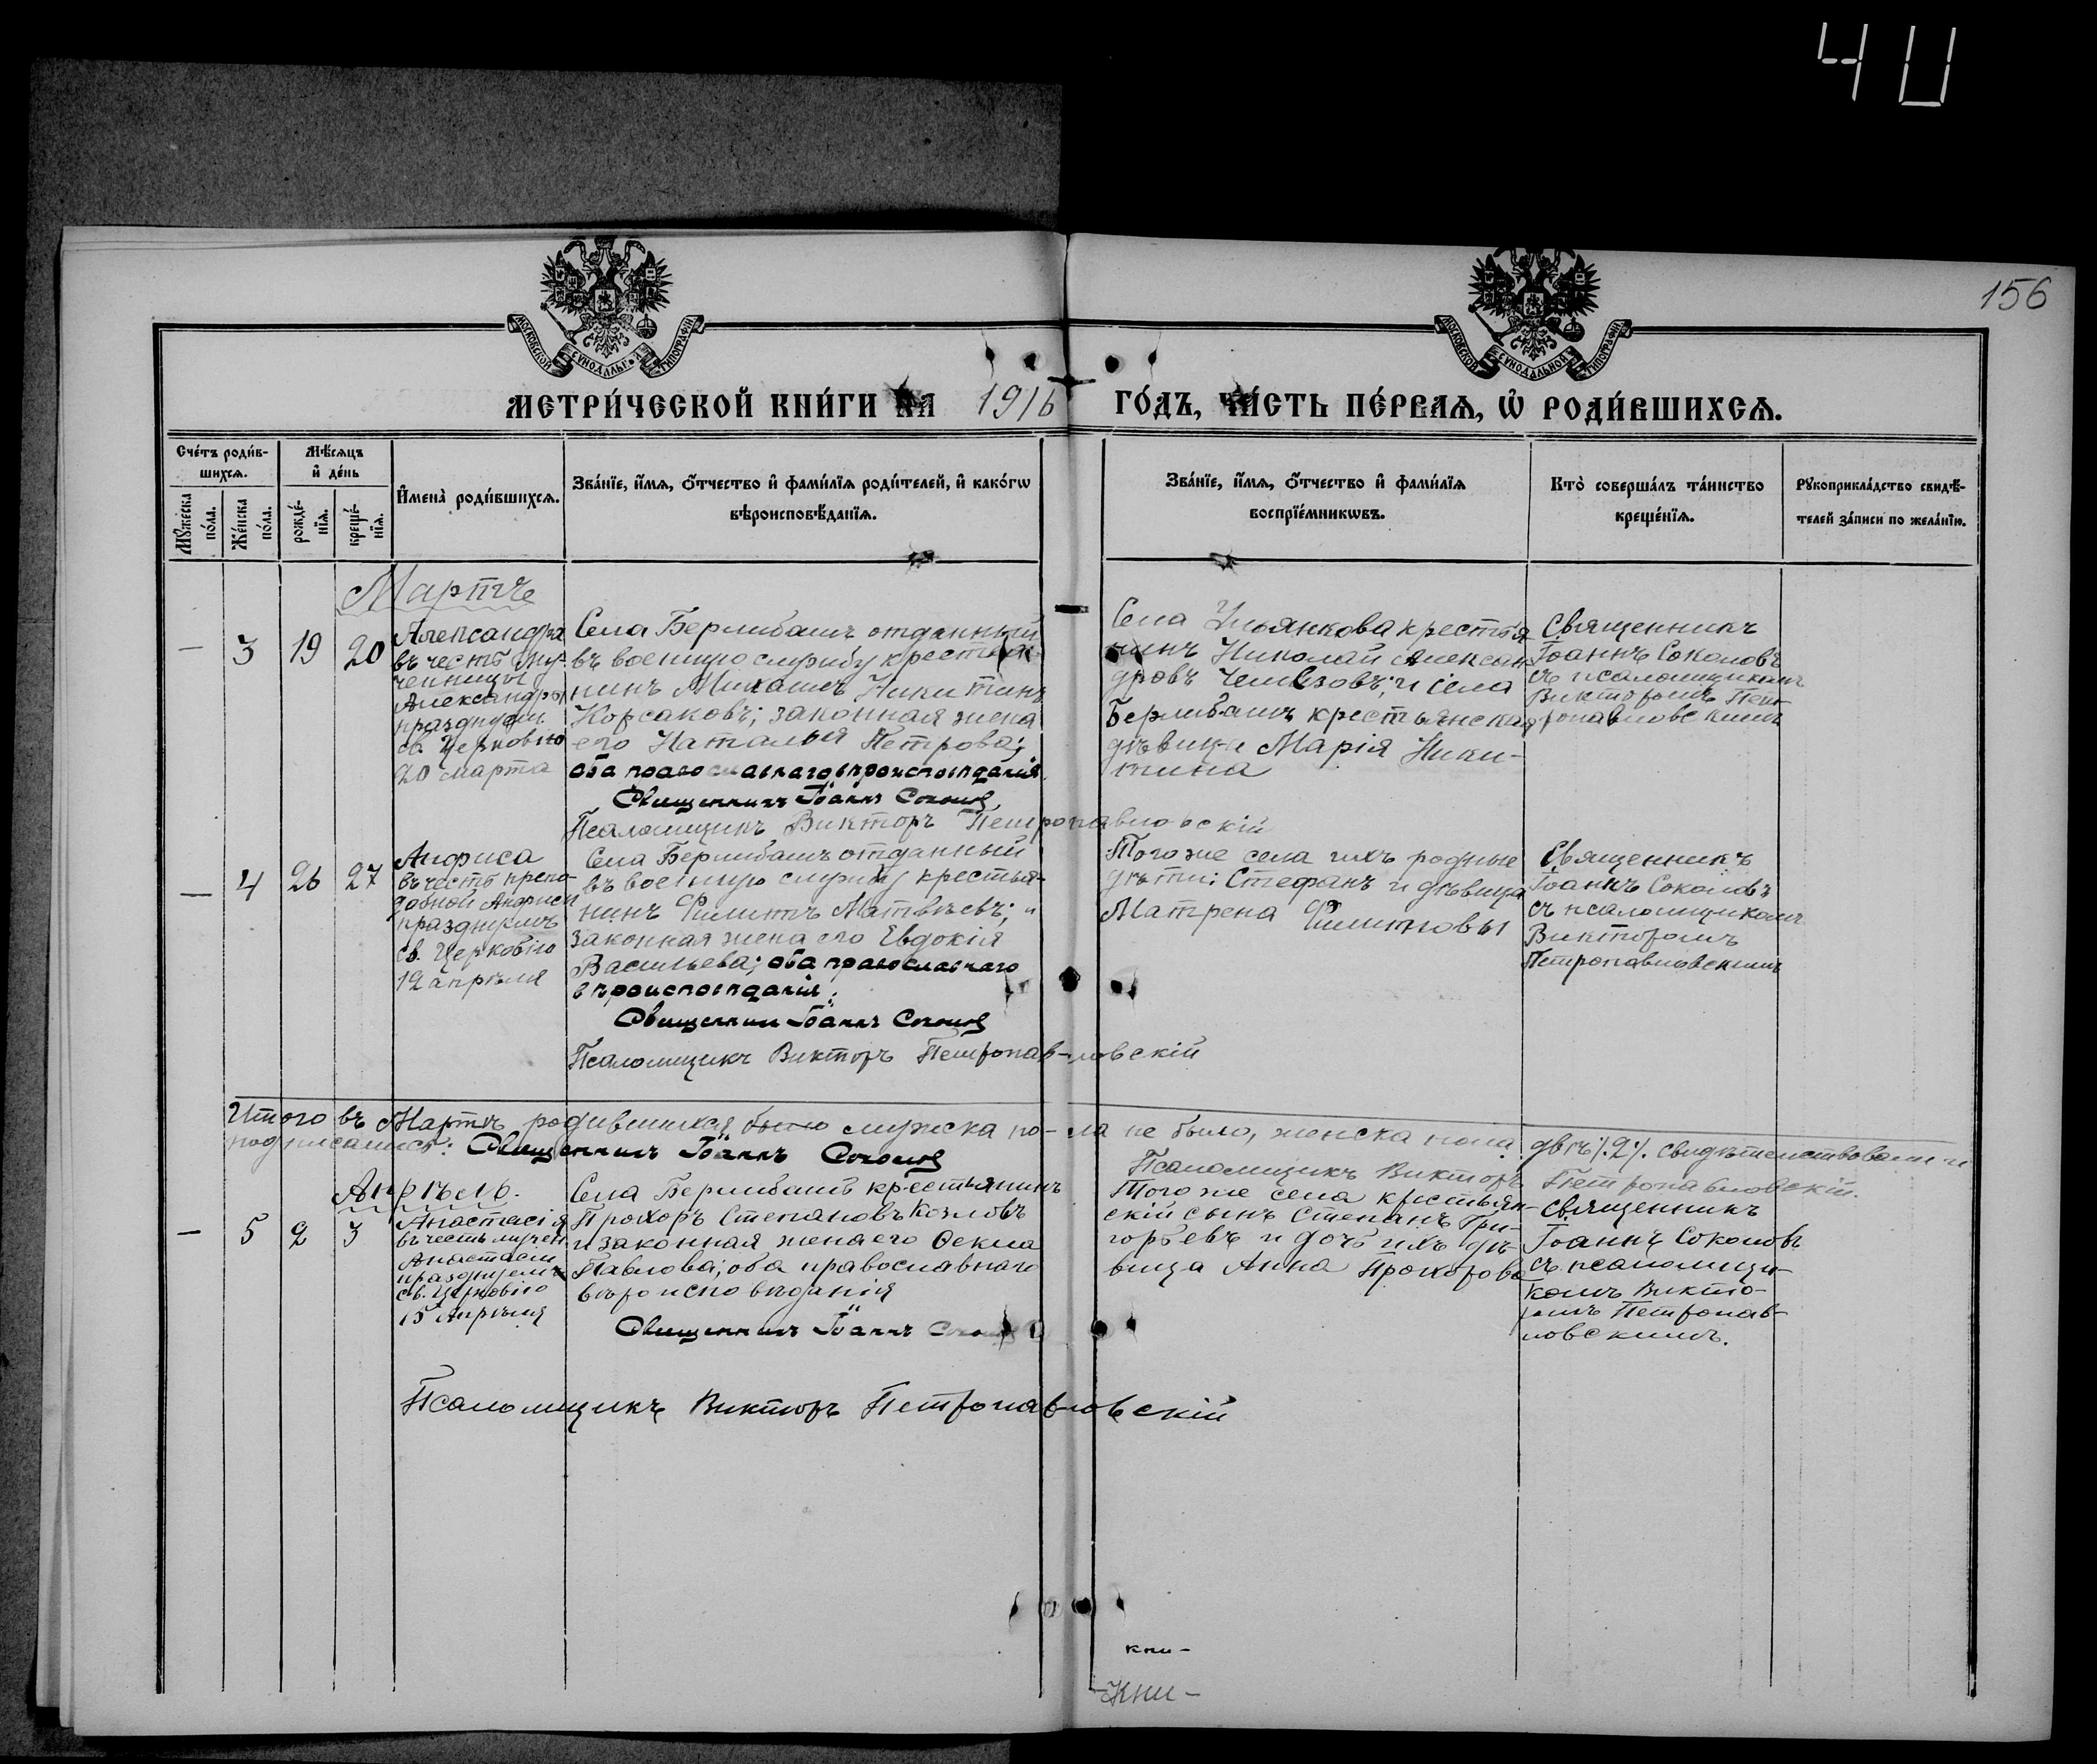 40
156
МОСКОВСКОЙ СѴНОДАЛЬНОЙ ТИПОГРАФІИ
МОСКОВСКОЙ СѴНОДАЛЬНОЙ ТИПОГРАФІИ
МЕТРИ́ЧЕСКОЙ КНИ́ГИ НА 1916 ГО́ДЪ, ЧА́СТЬ ПЕ́РВАѦ, Ѡ҆ РОДИ́ВШИХСѦ.
Сче́тъ роди́в-
шихсѧ.
Мꙋ́жеска по́ла.
Же́нска по́ла.
Мѣ́сѧцъ
и҆ де́нь
рожде́-
нїѧ.
креще́-
нїѧ.
И҆мена̀ роди́вшихсѧ.
Зва́нїе, и҆́мѧ, ѻ҆́тчество и҆ фами́лїѧ роди́телей, и҆ како́гѡ
вѣроисповѣ́данїѧ.
Зва́нїе, и҆́мѧ, ѻ҆́тчество и҆ фами́лїѧ
воспрїе́мникѡвъ.
Кто̀ соверша́лъ та́инство
креще́нїѧ.
Рꙋкоприкла́дство свидѣ́-
телей за́писи по жела́нїю.
Мартъ
— 3 19 20
Александра
въ честь му-
ченицы
Александры
празднуем.
св. Церковію
20 марта
Села Берлибашъ отданный
въ военную службу крестья-
нинъ Михаилъ Никитинъ
Корсаковъ; законная жена
его Наталья Петрова;
оба православнаго вѣроисповѣданія.
Священникъ Іоаннъ Соколов
Псаломщикъ Викторъ Петропавловскій
Села Ульянкова крестья
нинъ Николай Алексан-
дровъ Чемезовъ; и села
Берлибашъ крестьянская
дѣвица Марія Ники-
тина
Священникъ
Іоаннъ Соколовъ
съ псаломщикомъ
Викторомъ Пет-
ропавловскимъ
— 4 26 27
Анфиса
въ честь препо-
добной Анфисы
празднуемъ
св. Церковію
12 апрѣля
Села Берлибашъ отданный
въ военную службу крестья-
нинъ Филиппъ Матвѣевъ; и
законная жена его Евдокія
Васильева; оба православнаго
вѣроисповѣданія.
Священникъ Іоаннъ Соколов
Псаломщикъ Викторъ Петропав-ловскій
Того же села ихъ родные
дѣти: Стефанъ и дѣвица
Матрена Филипповы
Священникъ
Іоаннъ Соколовъ
съ псаломщикомъ
Викторомъ
Петропавловскимъ
Итого въ Мартѣ родившихся было мужска по-ла не было, женска пола двѣ ⁒2⁒. свидѣтельствовали и
подписались: Священникъ Іоаннъ Соколов
Псаломщикъ Викторъ Петропавловскій.
Апрѣль.
— 5 2 3
Анастасія
въ честь мучен.
Анастасіи
празднуемъ
св. Церковію
15 Апрѣля
Села Берлибашъ крестьянинъ
Прохоръ Степановъ Козловъ
и законная жена его Ѳекла
Павлова; оба православнаго
вѣроисповѣданія
Священникъ Іоаннъ Соколов
Того же села крестьян-
скій сынъ Степанъ Гри-
горьевъ и дочь ихъ дѣ-
вица Анна Прохорова
Священникъ
Іоаннъ Соколовъ
съ псаломщи-
комъ Викто-
ромъ Петропав-
ловскимъ.
Псаломщикъ Викторъ Петропав-ловскій
кни-
-Кни-